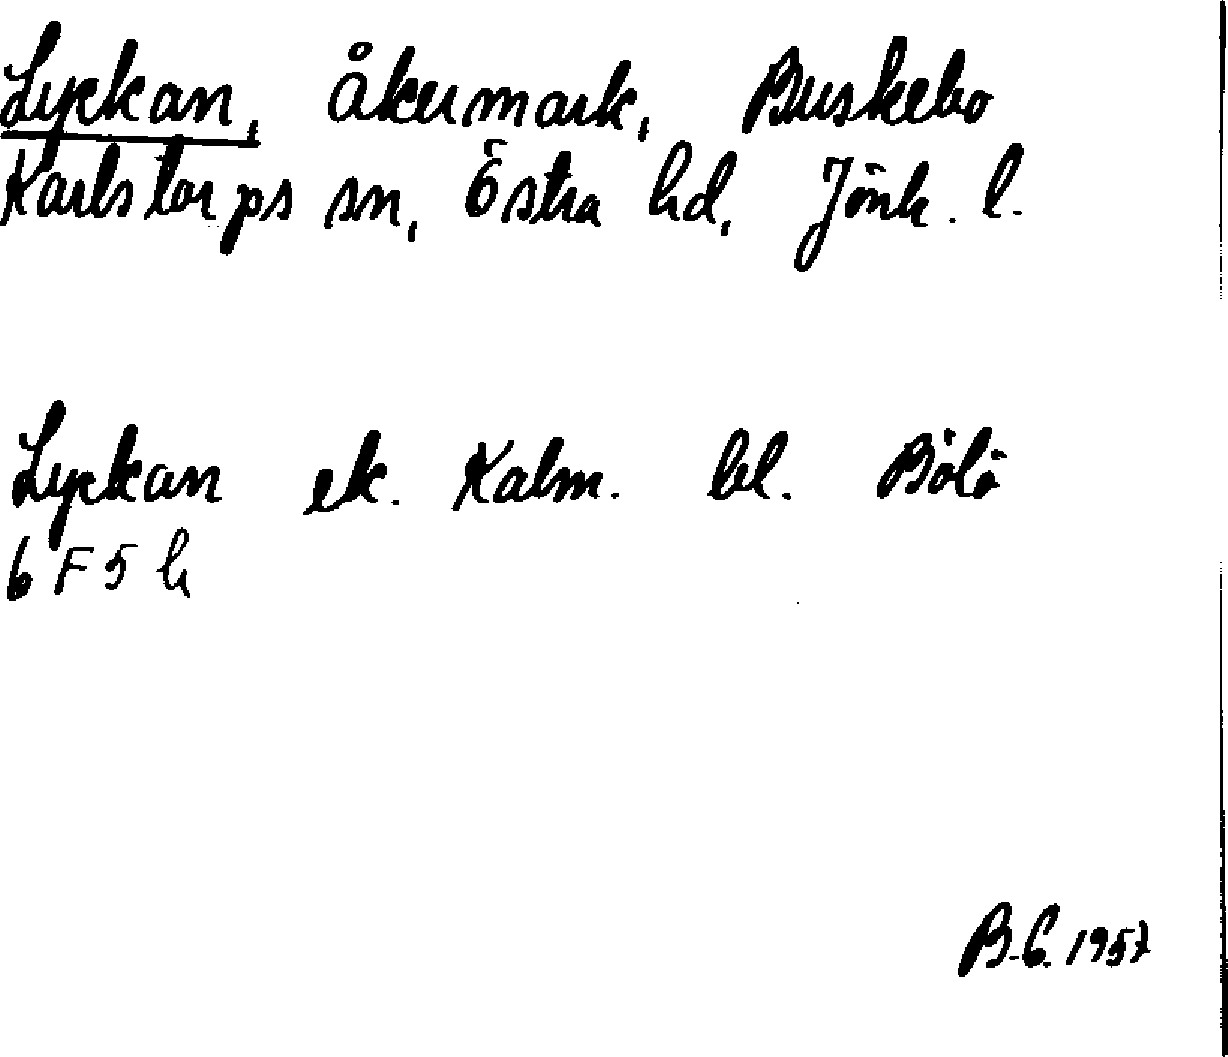 Lyckan, åkermark, Buskebo
Karlstorps sn, Östra hd, Jönk. l.
Lyckan ek. Kalm. bl. Bölö
6 F 5 h
B.C. 1957